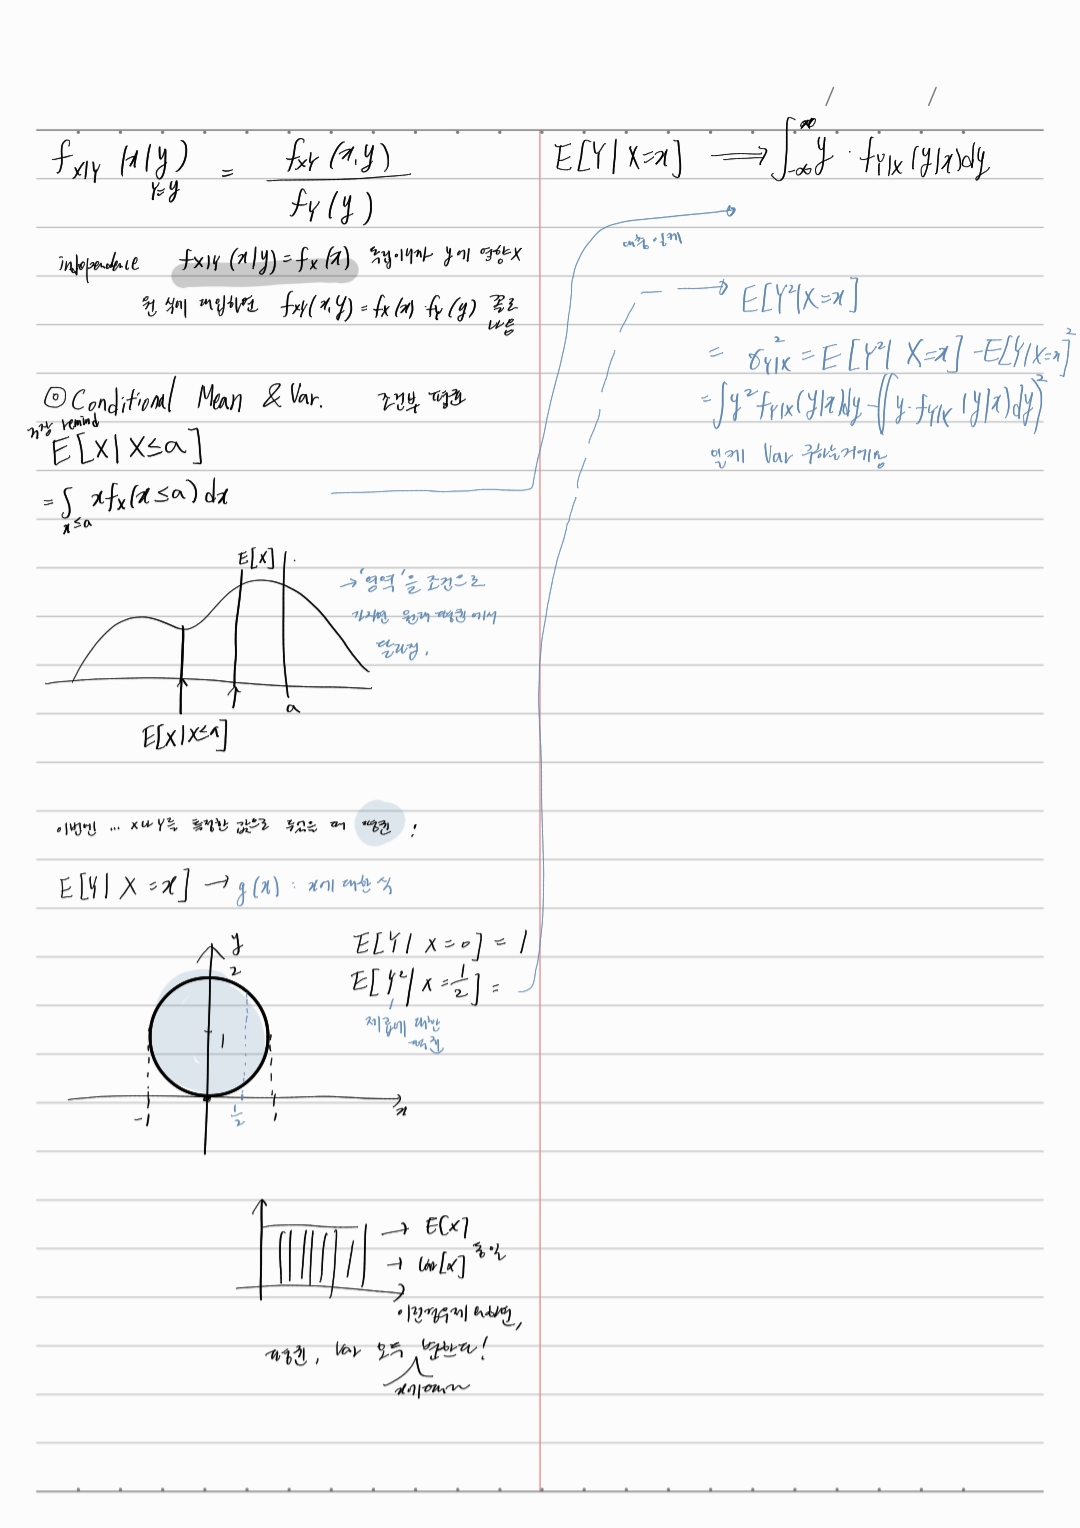 f_{X|Y}(x|y) = f_{XY}(x,y) / f_Y(y)
Y=y
independence f_{X|Y}(x|y) = f_X(x) 독립이니까 y에 영향X
원 식에 대입하면 f_{XY}(x,y) = f_X(x) · f_Y(y) 꼴로
나옴
◎ Conditional Mean & Var. 조건부 평균
remind
E[X|X≤a]
= ∫_{x≤a} x f_X(x≤a) dx
E[X]
→ '영역'을 조건으로
원래 평균에서
달라짐.
a
E[X|X≤a]
이번엔 ... X나 Y를 특정한 값으로 두었을 때 평균!
E[Y|X=x] → g(x) : x에 대한 식
y
2
1
-1
1/2
1
x
E[Y|X=0] = 1
E[Y²|X=1/2] =
제곱에 대한
평균
→ E[X]
→ Var[X] 동일
평균, Var 모두 변한다!
E[Y|X=x] ⟹ ∫_{-∞}^{∞} y · f_{Y|X}(y|x)dy
대충 일케
E[Y²|X=x]
= σ²_{Y|X} = E[Y²|X=x] - E[Y|X=x]²
= ∫y² f_{Y|X}(y|x)dy - (∫y·f_{Y|X}(y|x)dy)²
일케 Var 구하는거에용